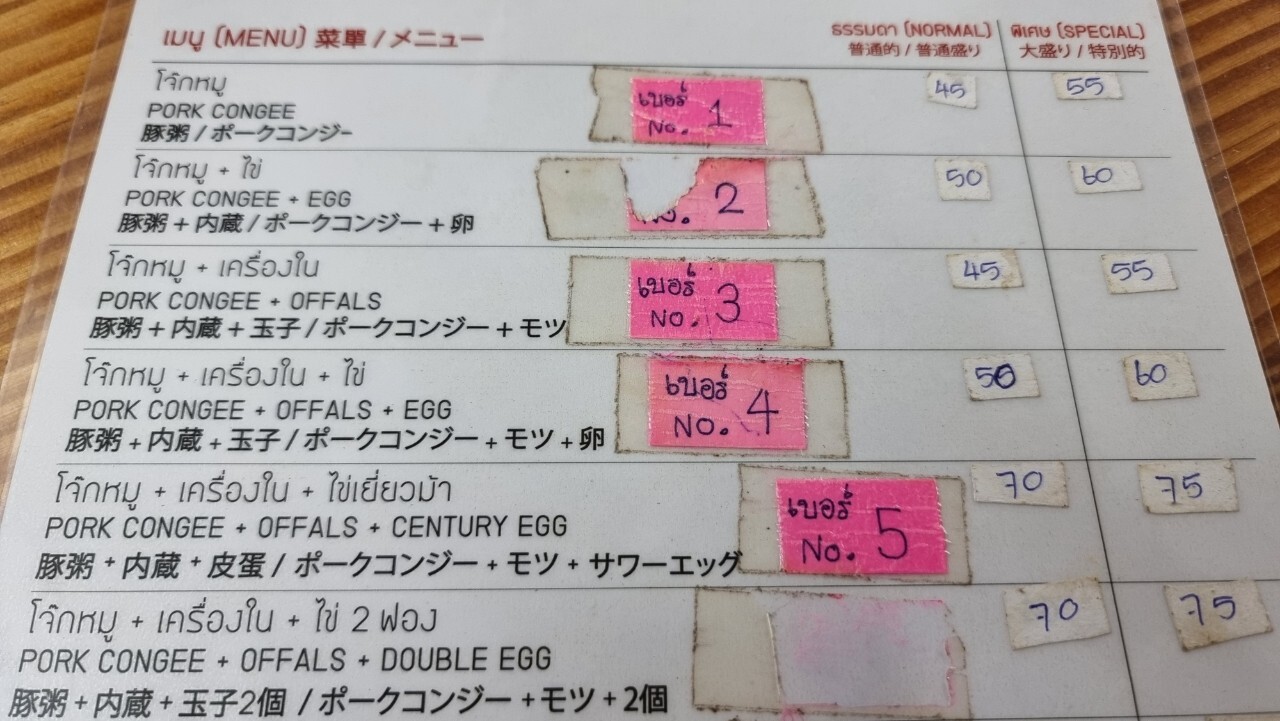 เมนู (MENU) 菜單 / メニュー
ธรรมดา (NORMAL)
普通的 / 普通盛り
พิเศษ (SPECIAL)
大盛り / 特別的
โจ๊กหมู
PORK CONGEE
豚粥 / ポークコンジー
เบอร์
No. 1
45
55
โจ๊กหมู + ไข่
PORK CONGEE + EGG
豚粥 + 内蔵 / ポークコンジー + 卵
No. 2
50
60
โจ๊กหมู + เครื่องใน
PORK CONGEE + OFFALS
豚粥 + 内蔵 + 玉子 / ポークコンジー + モツ
เบอร์
No. 3
45
55
โจ๊กหมู + เครื่องใน + ไข่
PORK CONGEE + OFFALS + EGG
豚粥 + 内蔵 + 玉子 / ポークコンジー + モツ + 卵
เบอร์
No. 4
50
60
โจ๊กหมู + เครื่องใน + ไข่เยี่ยวม้า
PORK CONGEE + OFFALS + CENTURY EGG
豚粥 + 内蔵 + 皮蛋 / ポークコンジー + モツ + サワーエッグ
เบอร์
No. 5
70
75
โจ๊กหมู + เครื่องใน + ไข่ 2 ฟอง
PORK CONGEE + OFFALS + DOUBLE EGG
豚粥 + 内蔵 + 玉子2個 / ポークコンジー + モツ + 2個
70
75